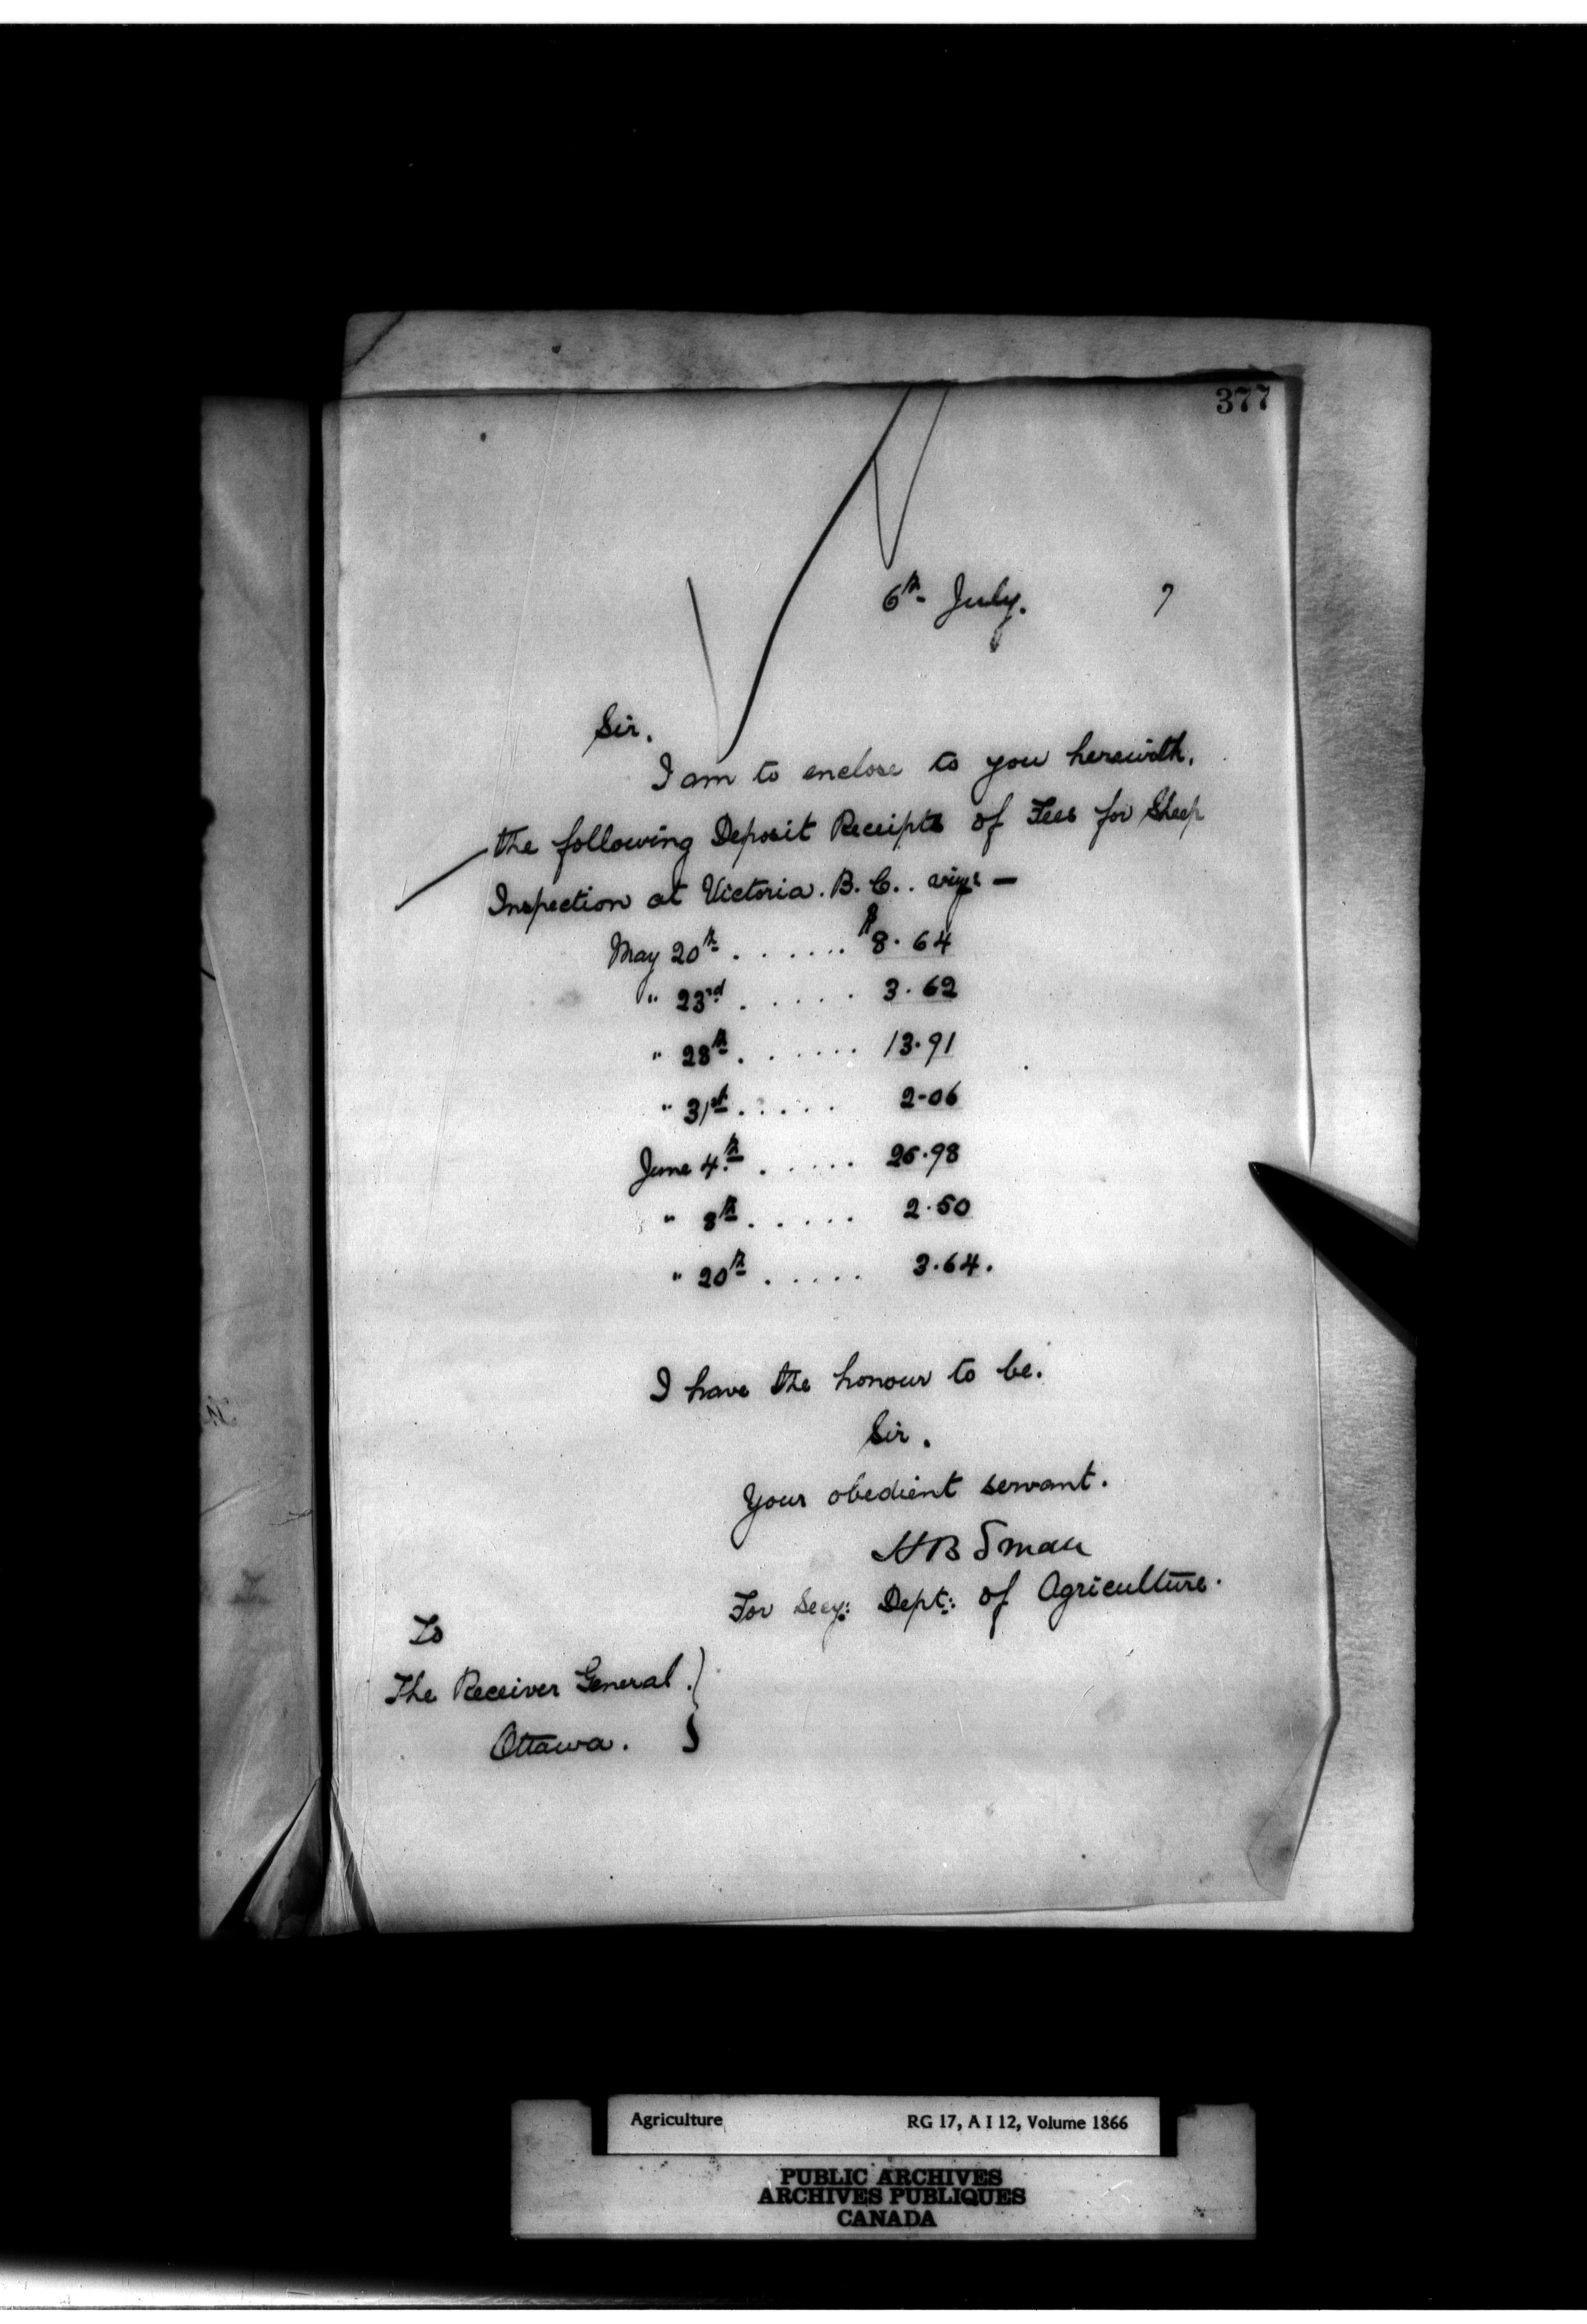 377
6th July. 7
Sir.
I am to enclose to you herewith,
the following Deposit Receipts of Fees for Sheep
Inspection at Victoria. B. C..
May 20th . . . . . . $8.64
" 23rd . . . . . 3.62
" 28th . . . . . . 13.91
" 31st . . . . . 2-06
June 4th . . . . . 26.98
" 8th . . . . . 2.50
" 20th . . . . . 3.64.
I have the honour to be.
Sir.
Your obedient servant.
H B Small
For Secy: Dept: of Agriculture.
To
The Receiver General.
Ottawa.
Agriculture RG 17, A I 12, Volume 1866
PUBLIC ARCHIVES
ARCHIVES PUBLIQUES
CANADA